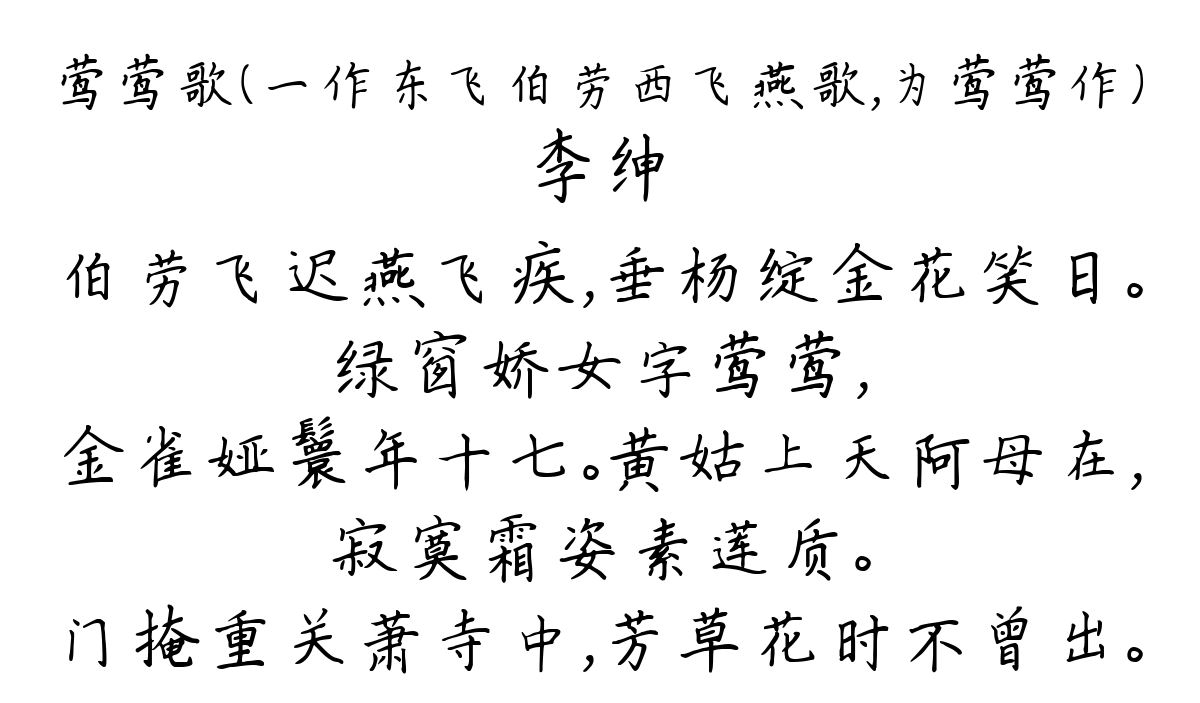 莺莺歌(一作东飞伯劳西飞燕歌,为莺莺作)
李绅
伯劳飞迟燕飞疾,垂杨绽金花笑日。
绿窗娇女字莺莺,
金雀娅鬟年十七。黄姑上天阿母在,
寂寞霜姿素莲质。
门掩重关萧寺中,芳草花时不曾出。